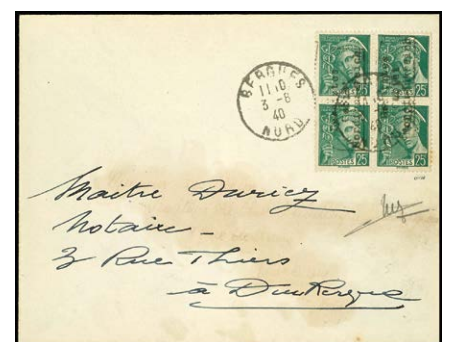 BERGUES
11 10
3 - 8
40
NORD
25
25
POSTES 25
POSTES 25
Maitre Duriez
Notaire -
3 Rue Thiers
à Dunkerque